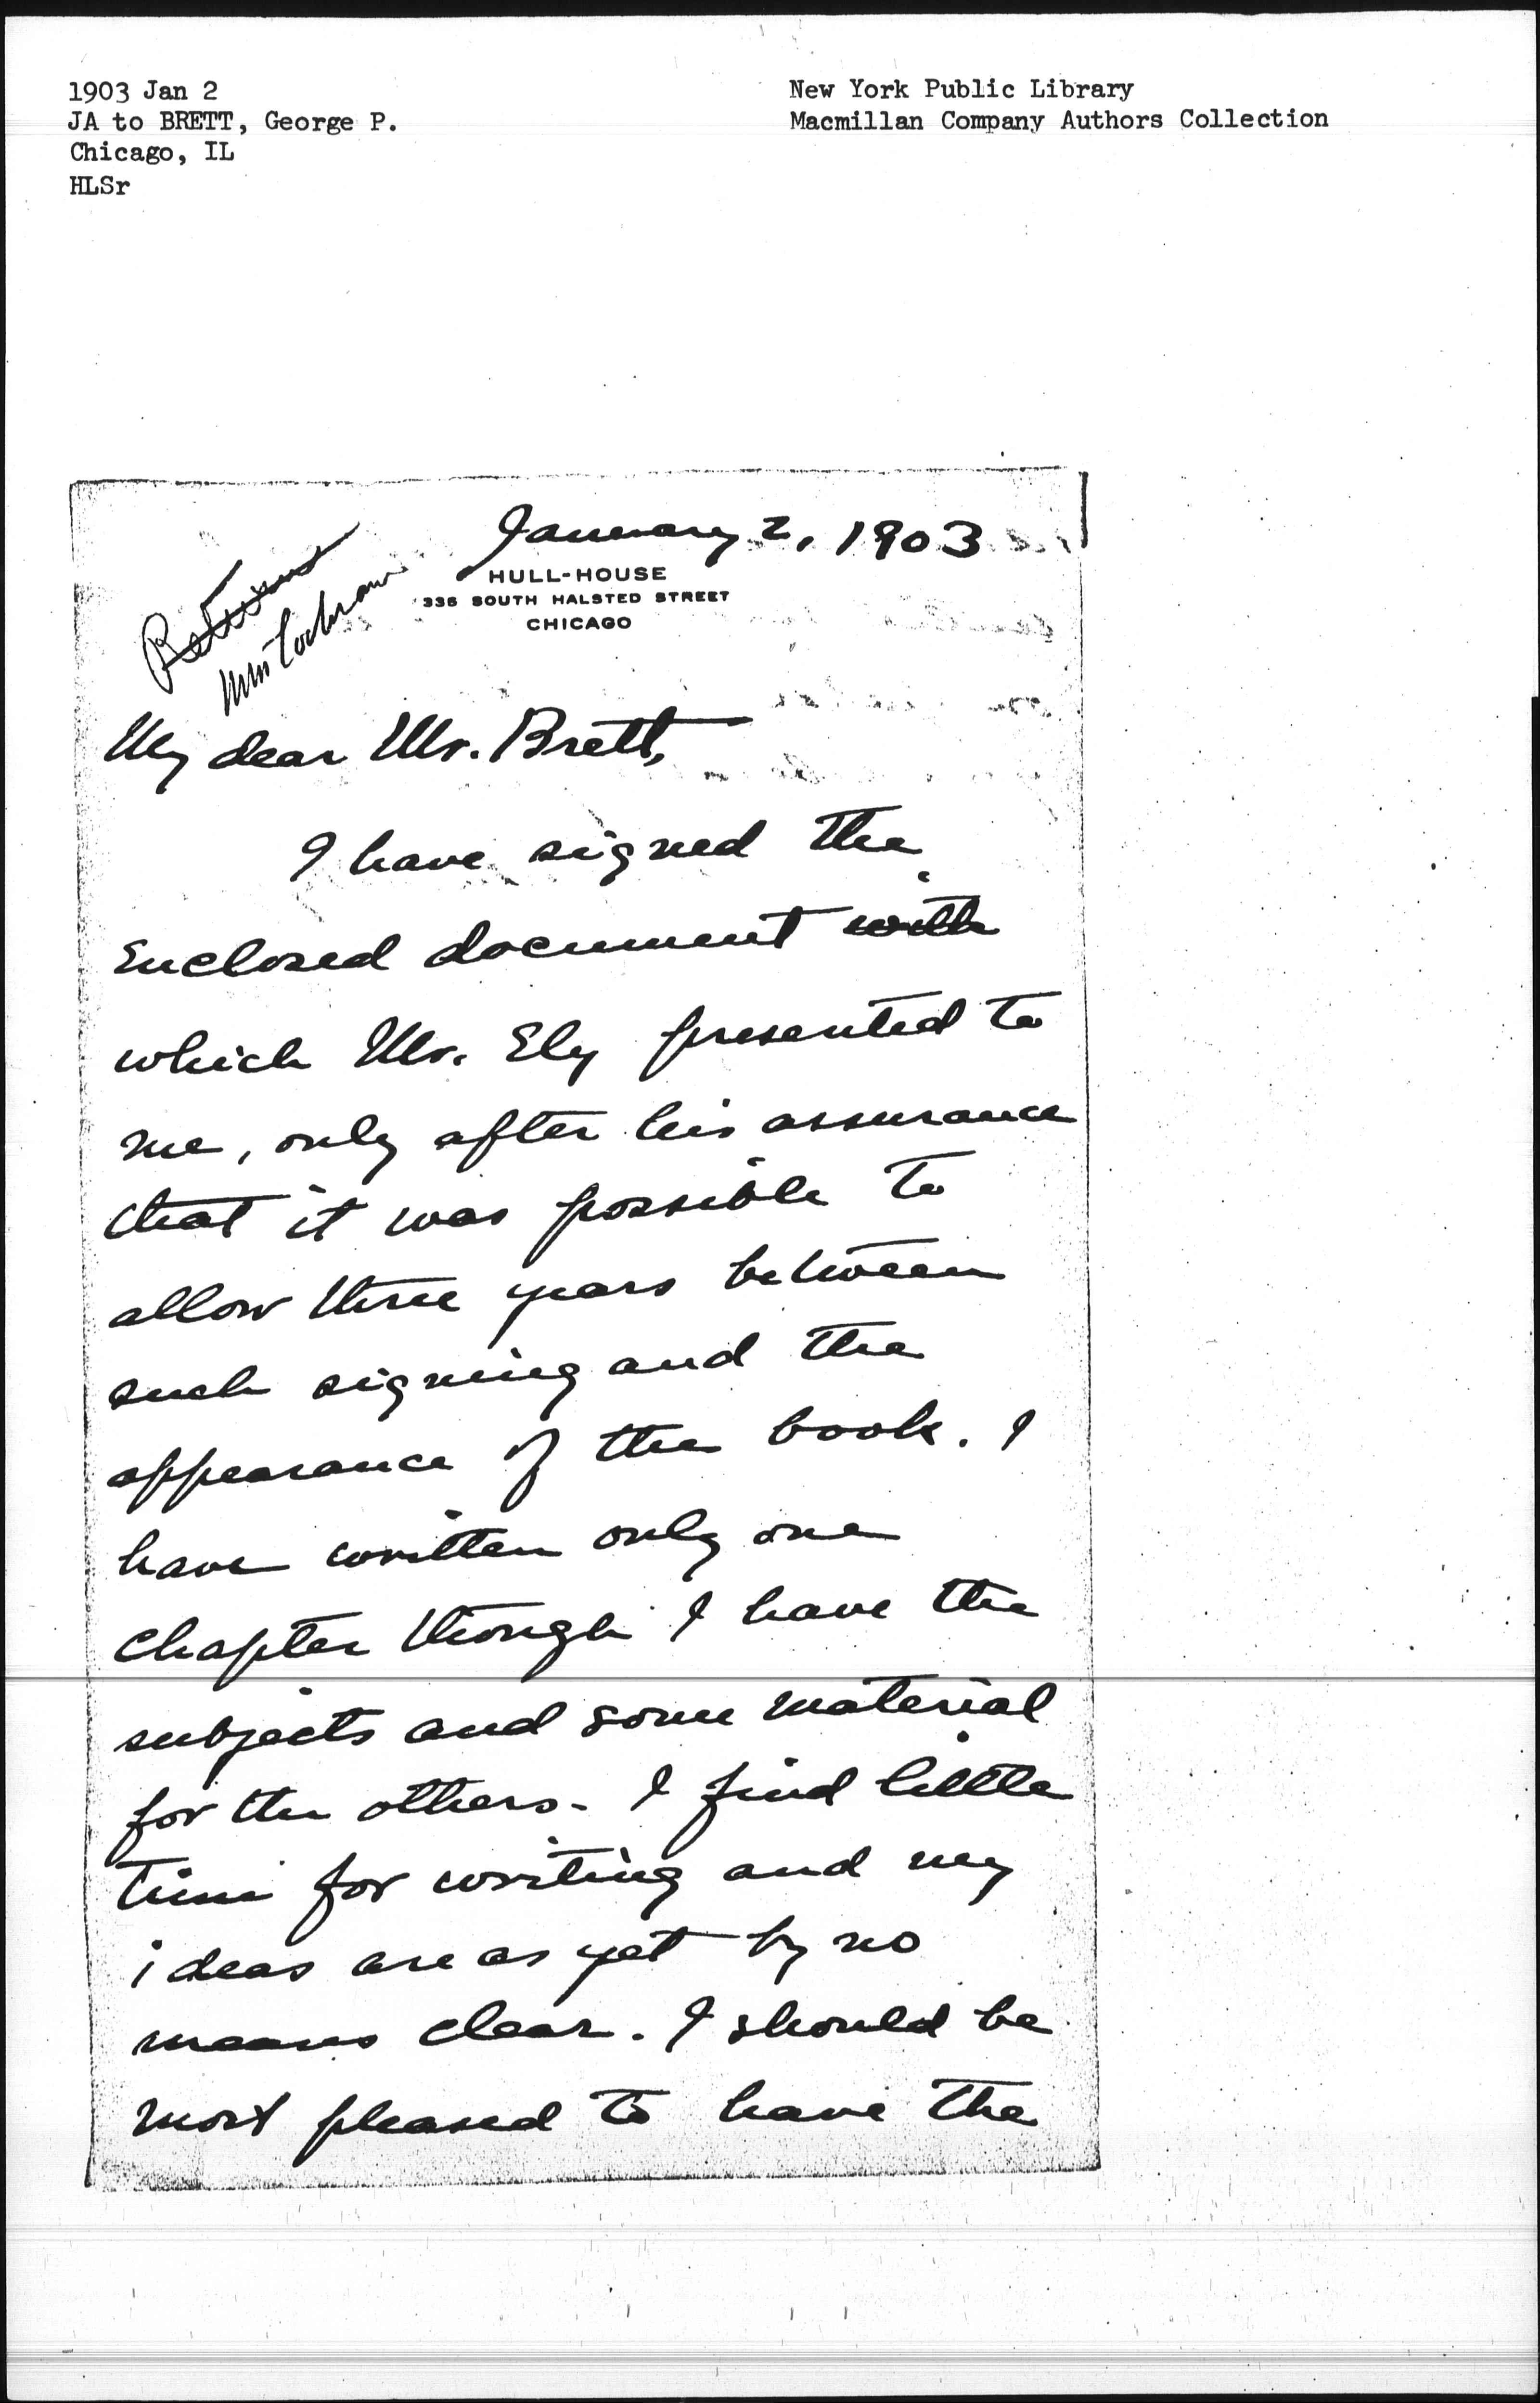 1903 Jan 2
JA to BRETT, George P.
Chicago, IL
HLSr
New York Public Library
Macmillan Company Authors Collection
January 2, 1903
HULL-HOUSE
335 SOUTH HALSTED STREET
CHICAGO
Miss Cochran
My dear Mr. Brett,
I have signed the
enclosed document with
which Mr. Ely presented to
me, only after his assurance
that it was possible to
allow three years between
such signing and the
appearance of the book. I
have written only one
chapter though I have the
subjects and some material
for the others. I find little
time for writing and my
ideas are as yet by no
means clear. I should be
most pleased to have the